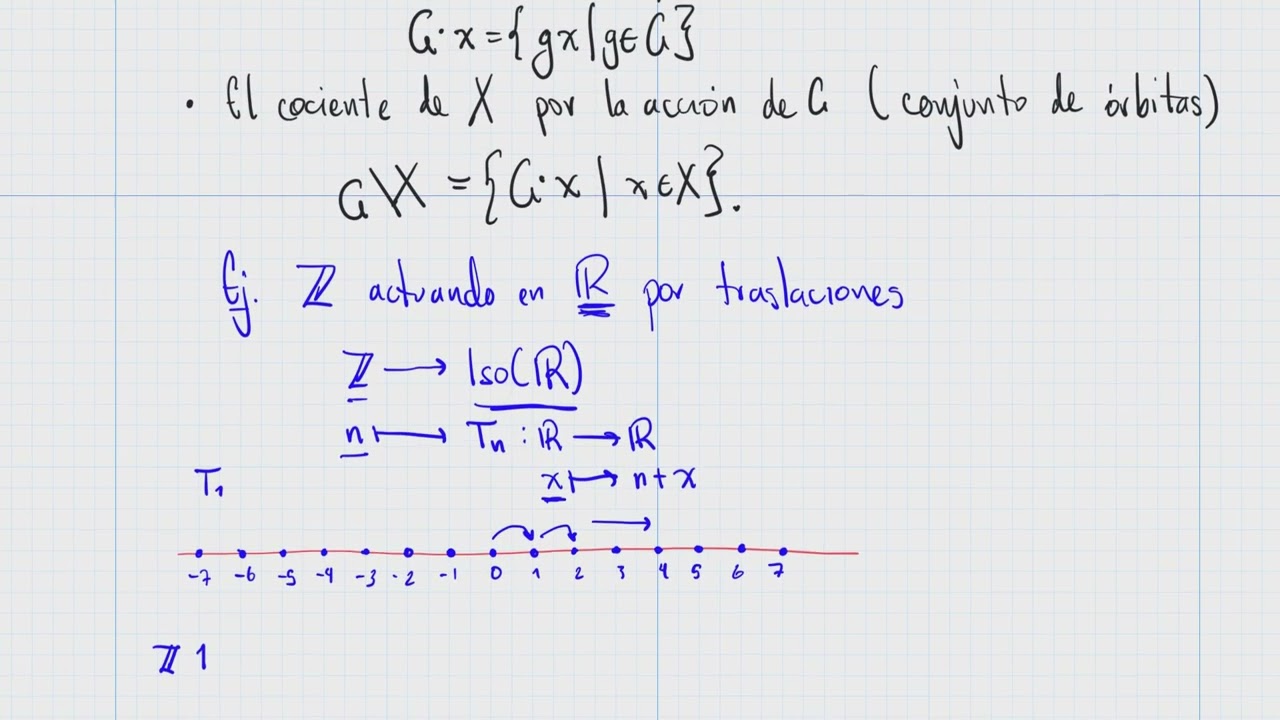 G·x={gx|g∈G}
• El cociente de X por la acción de G (conjunto de órbitas)
G\X = {G·x | x∈X}.
Ej. ℤ actuando en ℝ por traslaciones
ℤ ⟶ Iso(ℝ)
n ⟼ Tₙ : ℝ ⟶ ℝ
T₁ x ⟼ n+x
-7 -6 -5 -4 -3 -2 -1 0 1 2 3 4 5 6 7
ℤ 1